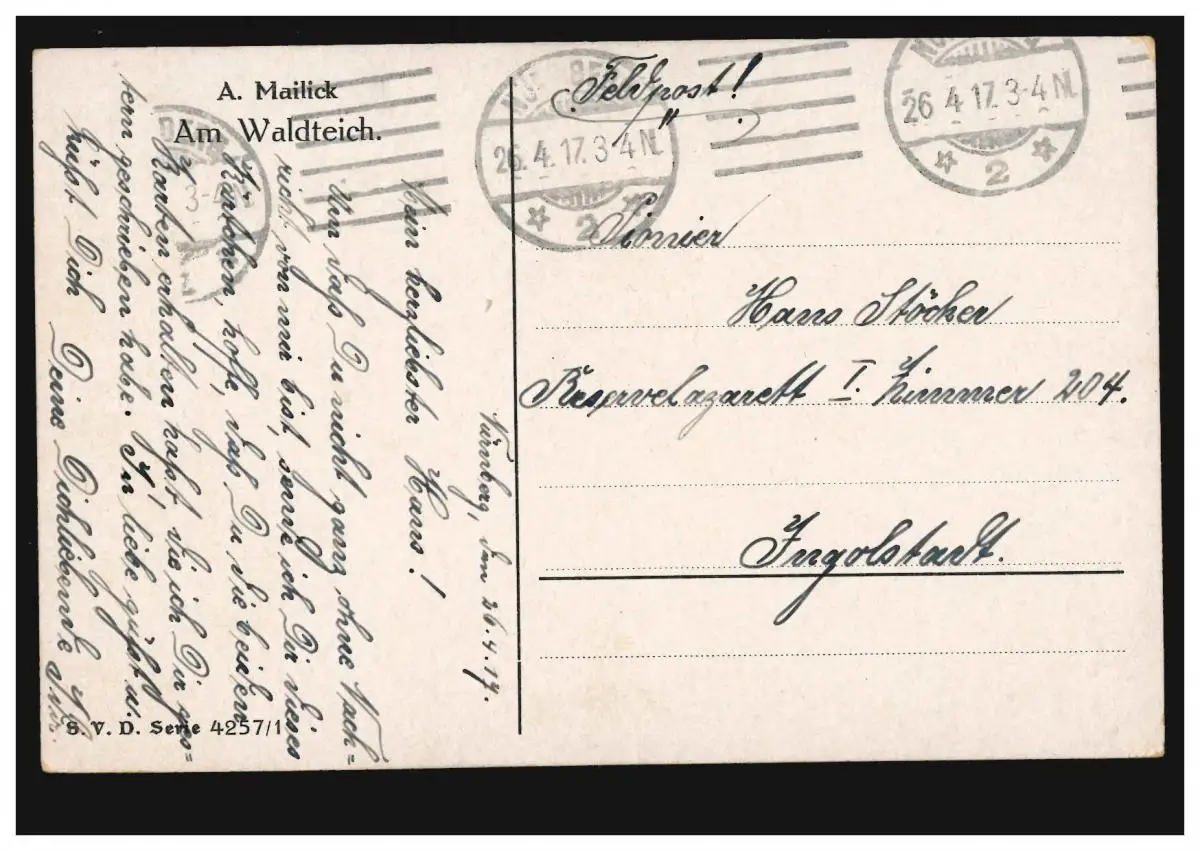 A. Mailick
Am Waldteich.
S. V. D. Serie 4257/1
Feldpost!
26. 4. 17. 3-4 N.
2
26. 4. 17. 3-4 N.
2
3-4
Pionier
Hans Stöcher
Reservelazarett I. Zimmer 204.
Ingolstadt.
Nürnberg, den 26.4.17.
Mein herzliebster Hans!
Um daß Du nicht ganz ohne Nach=
richt von mir bist, sende ich Dir dieses
Kärtchen, hoffe, daß Du die beiden
Karten erhalten hast die ich Dir ges=
tern geschrieben habe. In Liebe grüßt u.
küßt Dich Deine Dichliebende